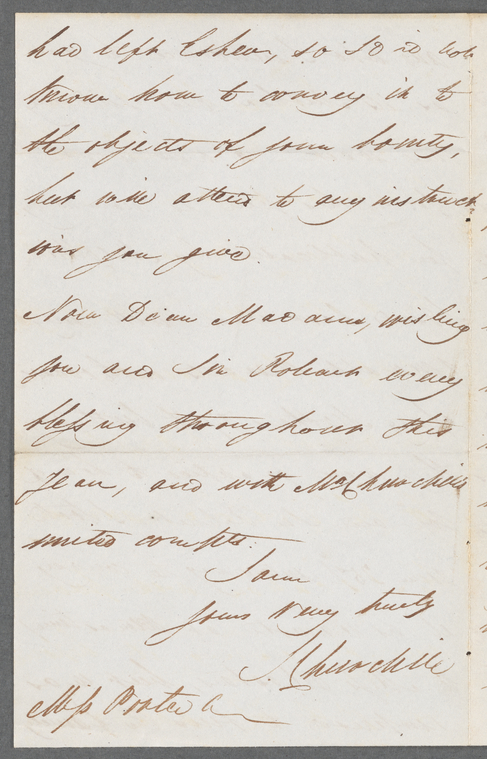 had left Esher, so I do not
know how to convey it to
the objects of your bounty,
but will attend to any instruct
ions you give.
Now Dear Madam, wishing
you and Sir Robert every
blessing throughout this
year, and with Mrs Churchills
united complts.
I am
yours very truly
Churchill
Miss Porter